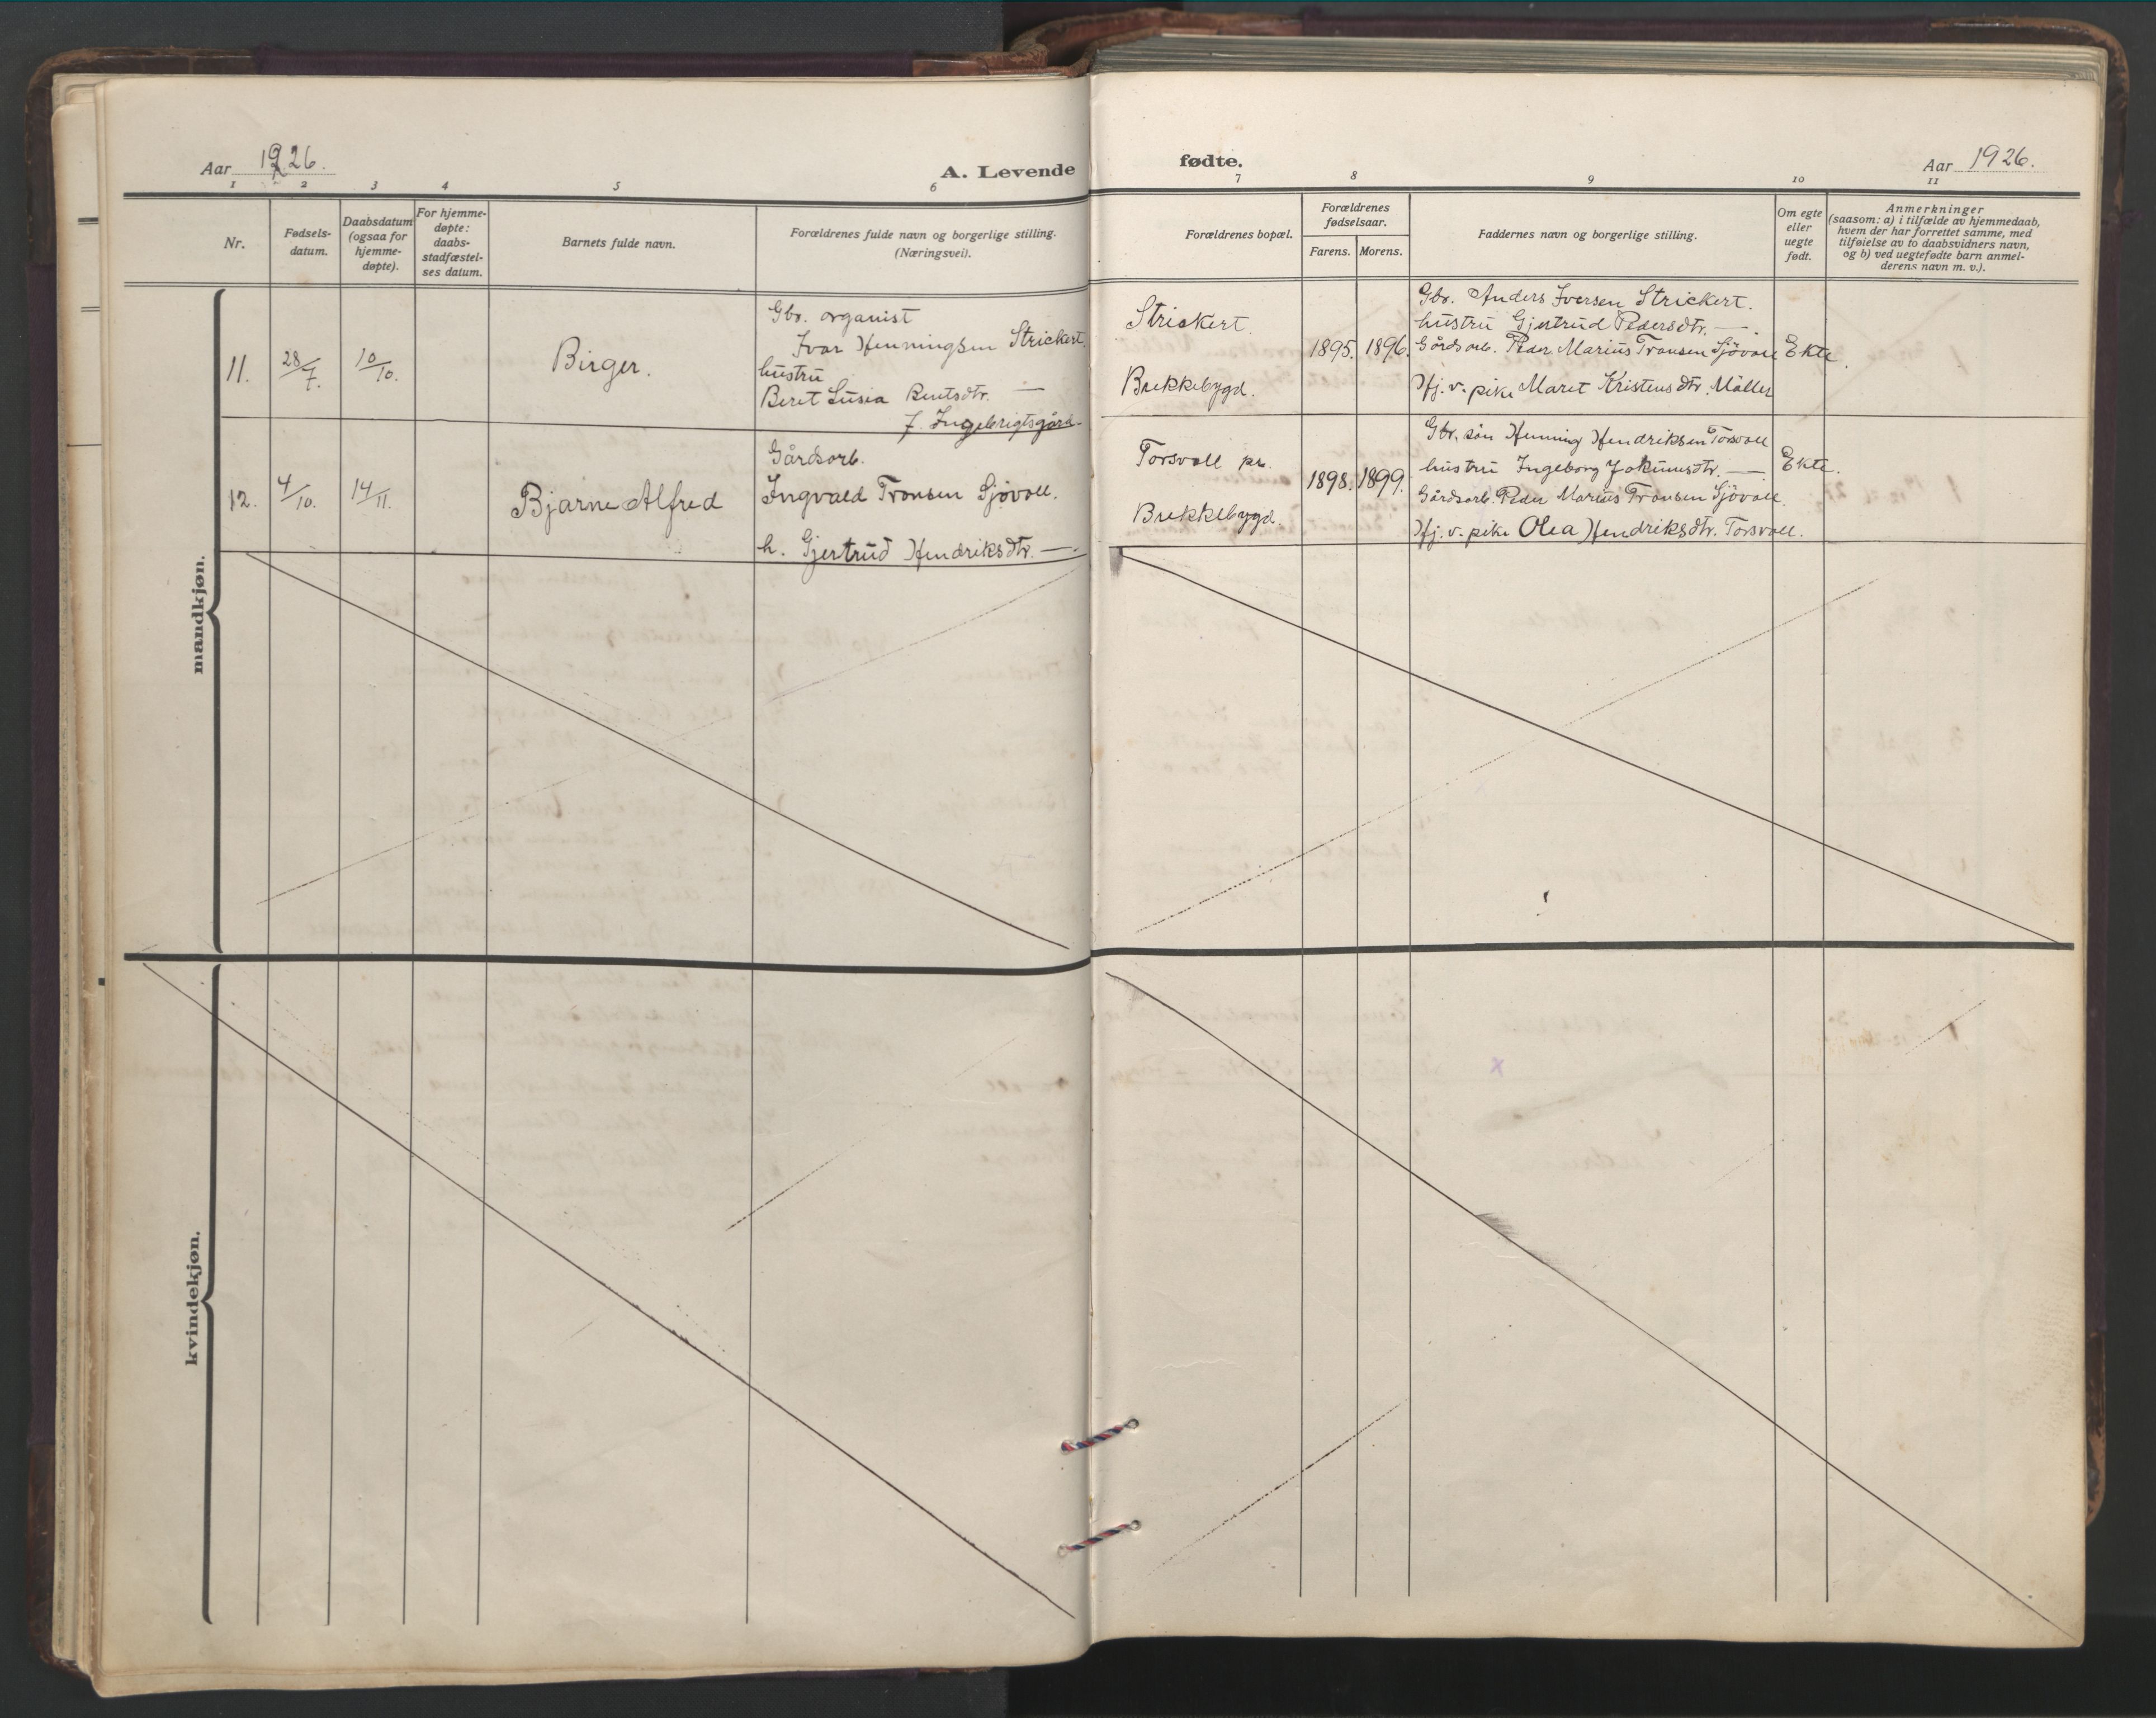 Aar 1926.
A. Levende fødte.
Aar 1926.
1 2 3 4 5 6 7 8 9 10 11
Nr.
Fødsels-
datum.
Daabsdatum
(ogsaa for
hjemme-
døpte).
For hjemme-
døpte:
daabs-
stadfæstel-
ses datum.
Barnets fulde navn.
Forældrenes fulde navn og borgerlige stilling.
(Næringsvei).
Forældrenes bopæl.
Forældrenes
fødselsaar.
Farens. Morens.
Faddernes navn og borgerlige stilling.
Om egte
eller
uegte
født.
Anmerkninger
(saasom: a) i tilfælde av hjemmedaab,
hvem der har forrettet samme, med
tilføielse av to daabsvidners navn,
og b) ved uegtefødte barn anmel-
derens navn m. v.).
mandkjøn.
11.
28/7.
10/10.
Birger.
Gbr. organist
Ivar Henningsen Strickert.
hustru
Beret Lusia Bentsdtr. —
f. Ingebrigtsgård.
Strickert.
Brekkebygd.
1895. 1896.
Gbr. Anders Iversen Strickert.
hustru Gjertrud Pedersdtr. —.
Gårdsarb. Peder Marius Tronsen Sjövoll
Hj. v. pike Maret Kristensdtr. Möller
Ekte.
12.
4/10.
14/11.
Bjarne Alfred
Gårdsarb.
Ingvald Tronsen Sjövoll.
h. Gjertrud Hendriksdtr. —.
Torsvoll pr.
Brekkebygd.
1898. 1899.
Gbr. sön Henning Hendriksen Torsvoll
hustru Ingeborg Jokumsdtr. —
Gårdsarb. Peder Marius Tronsen Sjövoll.
Hj. v. pike Olea Hendriksdtr. Torsvoll.
Ekte.
kvindekjøn.